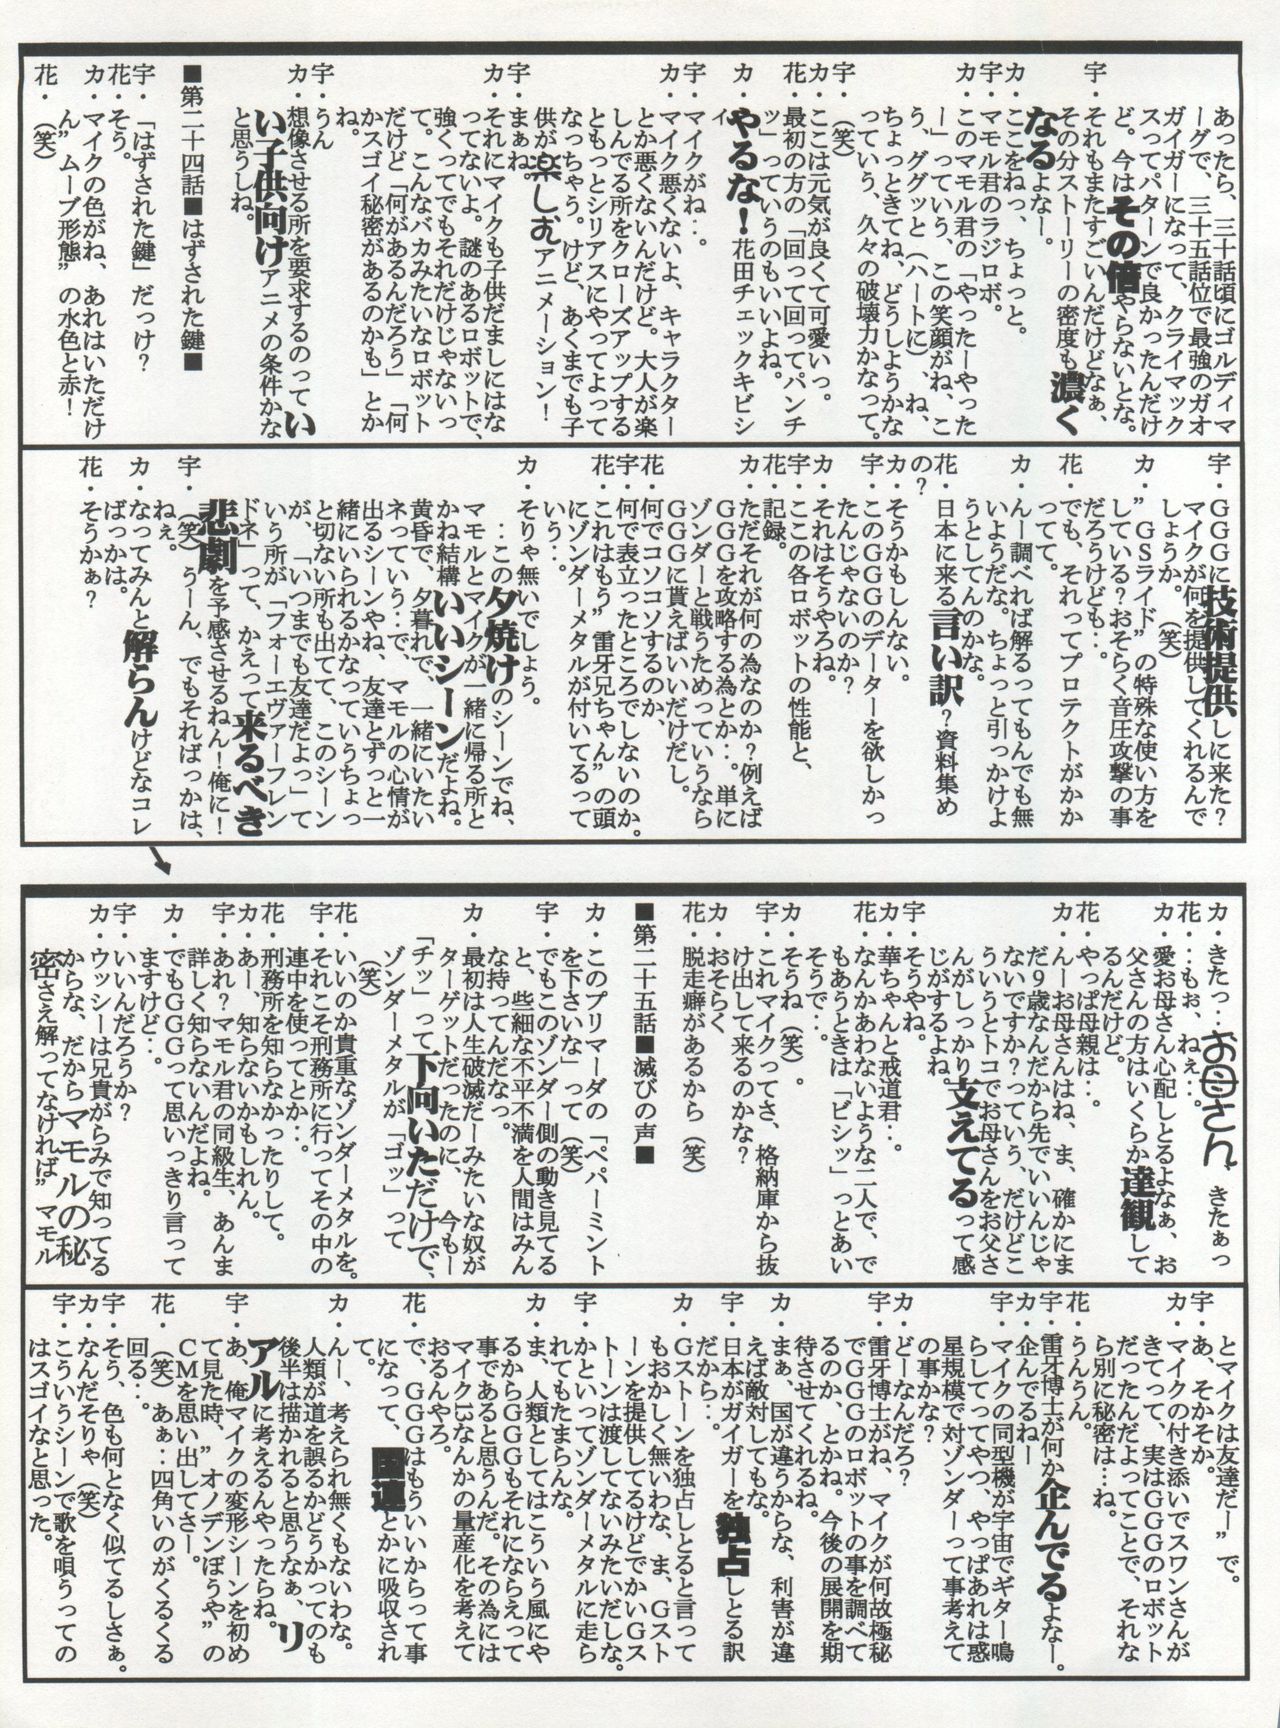 あったら、三十話頃にゴルディマ
ーグで、三十五話位で最強のガオ
ガイガーになって、クライマック
スってパターンで良かったんだけ
ど。今はその倍やらないとな。
宇・それもまたすごいんだけどなぁ、
その分ストーリーの密度も濃く
なるよなー。
カ・ここをねっ、ちょっと。
宇・マモル君のラジロボ。
カ・このマモル君の「やったーやった
ー」っていう、この笑顔がね、こ
う、ググッと（ハートに）ね、
ちょっときてね、どうしようかな
っていう、久々の破壊力かなって。
宇・（笑）
カ・ここは元気が良くて可愛いっ。
花・最初の方の「回って回ってパンチ
ッ」っていうのもいいよね。
カ・やるな！花田チェックキビシ
イ
宇・マイクがね‥。
カ・マイク悪くないよ、キャラクター
とか悪くないんだけど。大人が楽
しんでる所をクローズアップする
ともっとシリアスにやってよって
なっちゃう。けど、あくまでも子
供が楽しむアニメーション！
宇・まぁね。
カ・それにマイクも子供だましにはな
ってないよ。謎のあるロボットで、
強くってでもそれだけじゃないっ
て。こんなバカみたいなロボット
だけど「何があるんだろう」「何
かスゴイ秘密があるのかも」とか
ね。
宇・うん
カ・想像させる所を要求するのってい
い子供向けアニメの条件かな
と思うしね。
■第二十四話■はずされた鍵■
宇・「はずされた鍵」だっけ？
花・そう。
カ・マイクの色がね、あれはいただけ
ん”ムーブ形態”の水色と赤！
花・（笑）
宇・GGGに技術提供しに来た？
マイクが何を提供してくれるんで
しょうか。（笑）
カ・”GSライド”の特殊な使い方を
している？おそらく音圧攻撃の事
だろうけども‥。
花・でも、それってプロテクトがかか
ってて。
カ・んー調べれば解るってもんでも無
いようだな。ちょっと引っかけよ
うとしてんのかな。
花・日本に来る言い訳？資料集め
の？
カ・そうかもしんない。
宇・このGGGのデーターを欲しかっ
たんじゃないのか？
カ・それはそうやろね。
宇・ここの各ロボットの性能と、
花・記録。
カ・ただそれが何の為なのか？例えば
GGGを攻略する為とか‥。単に
ゾンダーと戦うためっていうなら
GGGに貰えばいいだけだし。
花・何でコソコソするのか、
宇・何で表立ったところでしないのか。
花・これはもう”雷牙兄ちゃん”の頭
にゾンダーメタルが付いてるって
いう‥。
カ・そりゃ無いでしょう。
‥この夕焼けのシーンでね、
マモルとマイクが一緒に帰る所と
かね結構いいシーンだよね。
黄昏で、夕暮れで、一緒にいたい
ネっていう‥で、マモルの心情が
出るシーンやね、友達とずっと一
緒にいられるかなっていうちょっ
と切ない所も出てて、このシーン
が、「いつまでも友達だよっ」て
いう所が「フォーエヴァーフレン
ドネ」って、かえって来るべき
悲劇を予感させるねん！俺に！
宇・（笑）うーん、でもそればっかは、
ねぇ。
カ・なってみんと解らんけどなコレ
ばっかは。
花・そうかぁ？
カ・きたっ‥お母さん、きたぁっ
花・‥もぉ、ねぇ‥。
カ・愛お母さん心配しとるよなぁ、お
父さんの方はいくらか達観して
るんだけど。
花・やっぱ母親は‥。
カ・んーお母さんはね、ま、確かにま
だ9歳なんだから先でいいんじゃ
ないですか？っていう、だけどこ
ういうとトコでお母さんをお父さ
んがしっかり支えてるって感
じがするよね。
宇・そうやね。
カ・華ちゃんと戒道君‥。
花・なんかあわないような二人で、で
もあうときは「ビシッ」っとあい
そうで‥。
カ・そうね（笑）。
宇・これマイクってさ、格納庫から抜
け出して来るのかな？
カ・おそらく
花・脱走癖があるから（笑）
■第二十五話■滅びの声■
カ・このプリマーダの「ペパーミント
を下さいな」って（笑）
宇・でもこのゾンダー側の動き見てる
と、些細な不平不満を人間はみん
な持ってんだなっ。
カ・最初は人生破滅だーみたいな奴が
ターゲットだったのに、今もー
「チッ」って下向いただけで、
ゾンダーメタルが「ゴッ」って
（笑）
花・いいのか貴重なゾンダーメタルを。
宇・それこそ刑務所に行ってその中の
連中を使ってとか‥。
花・刑務所を知らなかったりして。
カ・あー、知らないかもしれん。
宇・あれ？マモル君の同級生、あんま
詳しく知らないんだよね。
カ・でもGGGって思いっきり言って
ますけど‥。
宇・いいんだろうか？
カ・ウッシーは兄貴がらみで知ってる
からな、だからマモルの秘
密さえ解ってなければ”マモル
とマイクは友達だー”で。
宇・あ、そかそか。
カ・マイクの付き添いでスワンさんが
きてって、実はGGGのロボット
だったんだよってことで、それな
ら別に秘密は…ね。
花・うんうん。
宇・雷牙博士が何か企んでるよなー。
カ・企んでるねー
宇・マイクの同型機が宇宙でギター鳴
らしてってやつ、やっぱあれは惑
星規模で対ゾンダーって事考えて
の事かな？
カ・どーなんだろ？
宇・雷牙博士がね、マイクが何故極秘
でGGGのロボットの事を調べて
るのか、とかね。今後の展開を期
待させてくれるね。
カ・まぁ、国が違うからな、利害が違
えば敵対してもな。
宇・日本がガイガーを独占しとる訳
だから‥。
カ・Gストーンを独占しとると言って
もおかしく無いわな、ま、Gスト
ーンを提供してるけどでかいGス
トーンは渡してないみたいだしな。
宇・かといってゾンダーメタルに走ら
れてもたまらんな。
カ・ま、人類としてはこういう風にや
るからGGGもそれにならえって
事であると思うんだ。その為には
マイク13なんかの量産化を考えて
おるんやろ。
花・で、GGGはもういいからって事
になって、国連とかに吸収され
て。
カ・んー、考えられ無くもないわな。
人類が道を誤るかどうかってのも
後半は描かれると思うなぁ、リ
アルに考えるんやったらね。
宇・あ、俺マイクの変形シーンを初め
て見た時、”オノデンぼうや”の
CMを思い出してさー。
花・（笑）あぁ‥四角いのがくるくる
回る‥。
宇・そう、色も何となく似てるしさぁ。
カ・なんだそりゃ（笑）
宇・こういうシーンで歌を唄うっての
はスゴイなと思った。